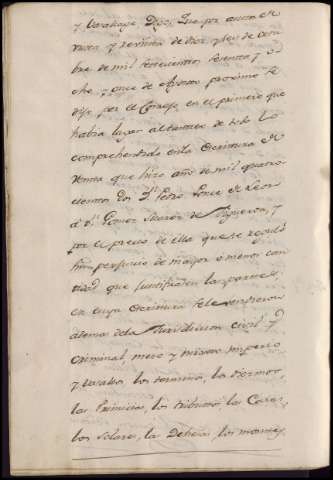 y Vasallaje Dijo: Que por autos de
vista, y revista de diez y seis de octu-
bre de mil setecientos setenta y o-
cho, y once de Agosto proximo se
dijo, por el Consejo, en el primero que
habia lugar al tanteo de todo lo
comprehendido en la Escritura de
Venta que hizo año de mil quatro-
cientos dos Dn. Pedro Ponce de Leon
a Dn. Gomez Suarez de Figueroa, y
por el precio de ella que se reguló
sin perjuicio de mayor o menor can-
tidad que justificasen las partes,
en cuya Escritura se le vendieron
ademas de la Jurisdiccion civil y
Criminal, mero y mixto imperio
y Vasallos, los terminos, los diezmos,
las Primicias, los tributos, las Casas,
los solares, las Dehesas, los montes,